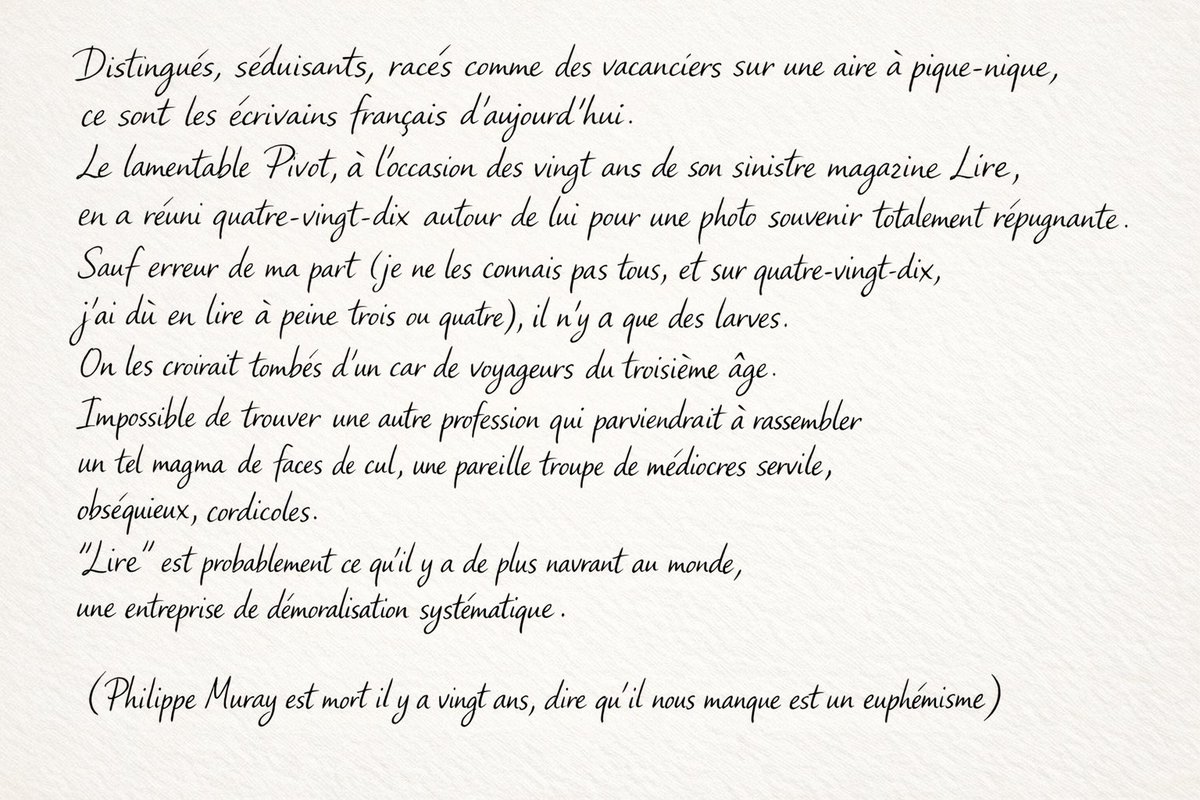 Distingués, séduisants, racés comme des vacanciers sur une aire à pique-nique,
ce sont les écrivains français d'aujourd'hui.
Le lamentable Pivot, à l'occasion des vingt ans de son sinistre magazine Lire,
en a réuni quatre-vingt-dix autour de lui pour une photo souvenir totalement répugnante.
Sauf erreur de ma part (je ne les connais pas tous, et sur quatre-vingt-dix,
j'ai dù en lire à peine trois ou quatre), il n'y a que des larves.
On les croirait tombés d'un car de voyageurs du troisième âge.
Impossible de trouver une autre profession qui parviendrait à rassembler
un tel magma de faces de cul, une pareille troupe de médiocres servile,
obséquieux, cordicoles.
"Lire" est probablement ce qu'il y a de plus navrant au monde,
une entreprise de démoralisation systématique.
(Philippe Muray est mort il y a vingt ans, dire qu'il nous manque est un euphémisme)